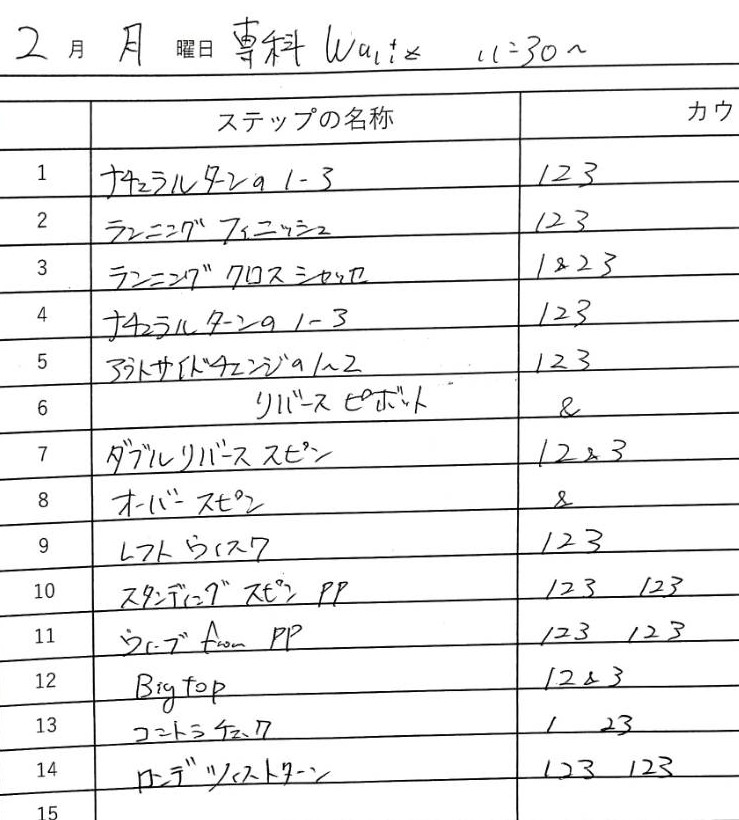 2月 月 曜日 専科 Waltz 11:30～
ステップの名称 カウ
1 ナチュラルターンの1-3 123
2 ランニング フィニッシュ 123
3 ランニング クロス シャッセ 1&23
4 ナチュラルターンの1-3 123
5 アウトサイドチェンジの1~2 123
6 リバース ピボット &
7 ダブルリバース スピン 12&3
8 オーバー スピン &
9 レフト ウィスク 123
10 スタンディング スピン PP 123 123
11 ウィーブ from PP 123 123
12 Big top 12&3
13 コントラ チェック 1 23
14 ロンデ ツイストターン 123 123
15